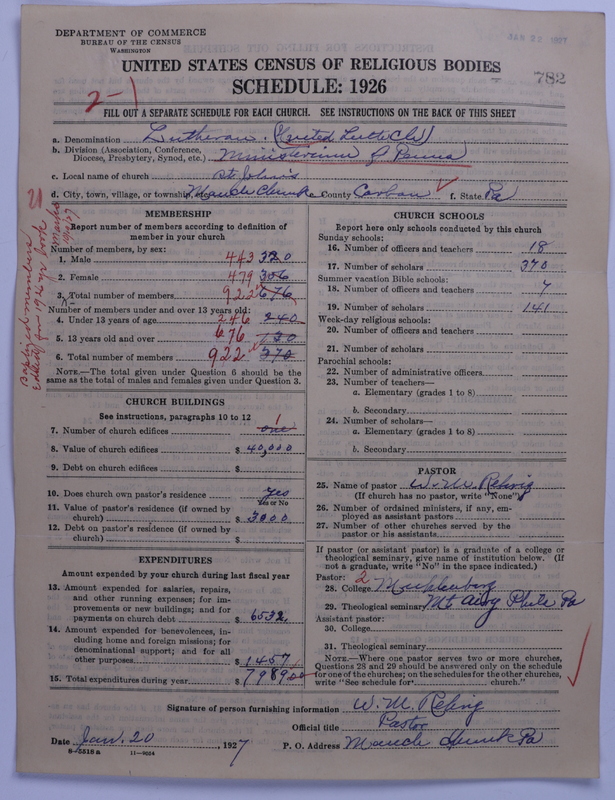 DEPARTMENT OF COMMERCE
BUREAU OF THE CENSUS
WASHINGTON
JAN 22 1927
UNITED STATES CENSUS OF RELIGIOUS BODIES
SCHEDULE: 1926
782
2-1
FILL OUT A SEPARATE SCHEDULE FOR EACH CHURCH. SEE INSTRUCTIONS ON THE BACK OF THIS SHEET
a. Denomination Lutheran. (United Luth Ch)
b. Division (Association, Conference, Diocese, Presbytery, Synod, etc.) Ministerium of Penna
c. Local name of church St. John's
d. City, town, village, or township, etc. Mauch Chunk e County Carbon f. State Pa
MEMBERSHIP
Report number of members according to definition of
member in your church
Number of members, by sex:
1. Male 443 320
2. Female 479 356
3. Total number of members 922 676
Number of members under and over 13 years old:
4. Under 13 years of age 246 240
5. 13 years old and over 676 130
6. Total number of members 922 370
NOTE.—The total given under Question 6 should be the
same as the total of males and females given under Question 3.
CHURCH BUILDINGS
See instructions, paragraphs 10 to 12
7. Number of church edifices one 1
8. Value of church edifices $ 40,000
9. Debt on church edifices $
10. Does church own pastor's residence Yes
Yes or No
11. Value of pastor's residence (if owned by
church) $ 3000
12. Debt on pastor's residence (if owned by
church) $
EXPENDITURES
Amount expended by church during last fiscal year
13. Amount expended for salaries, repairs,
and other running expenses; for im-
provements or new buildings; and for
payments on church debt $ 6532.
14. Amount expended for benevolences, in-
cluding home and foreign missions; for
denominational support; and for all
other purposes $ 1457
15. Total expenditures during year $ 7989.00
CHURCH SCHOOLS
Report here only schools conducted by this church
Sunday schools:
16. Number of officers and teachers 18
17. Number of scholars 370
Summer vacation Bible schools:
18. Number of officers and teachers 7
19. Number of scholars 141
Week-day religious schools:
20. Number of officers and teachers
21. Number of scholars
Parochial schools:
22. Number of administrative officers
23. Number of teachers—
a. Elementary (grades 1 to 8)
b. Secondary
24. Number of scholars—
a. Elementary (grades 1 to 8)
b. Secondary
PASTOR
25. Name of pastor W. M. Rehrig
(If church has no pastor, write "None")
26. Number of ordained ministers, if any, em-
ployed as assistant pastors
27. Number of other churches served by the
pastor or his assistants
If pastor (or assistant pastor) is a graduate of a college or
theological seminary, give name of institution below. (If
not a graduate, write "No" in the space indicated.)
Pastor: 2
28. College Muhlenberg
29. Theological seminary Mt Airy Phila Pa
Assistant pastor:
30. College
31. Theological seminary
NOTE.—Where one pastor serves two or more churches,
Questions 28 and 29 should be answered only on the schedule
for one of the churches; on the schedules for the other churches,
write "See schedule for church."
Signature of person furnishing information W. M. Rehrig
Official title Pastor
Date Jan. 20, 1927 P. O. Address Mauch Chunk Pa
8-5518 a 11-9054